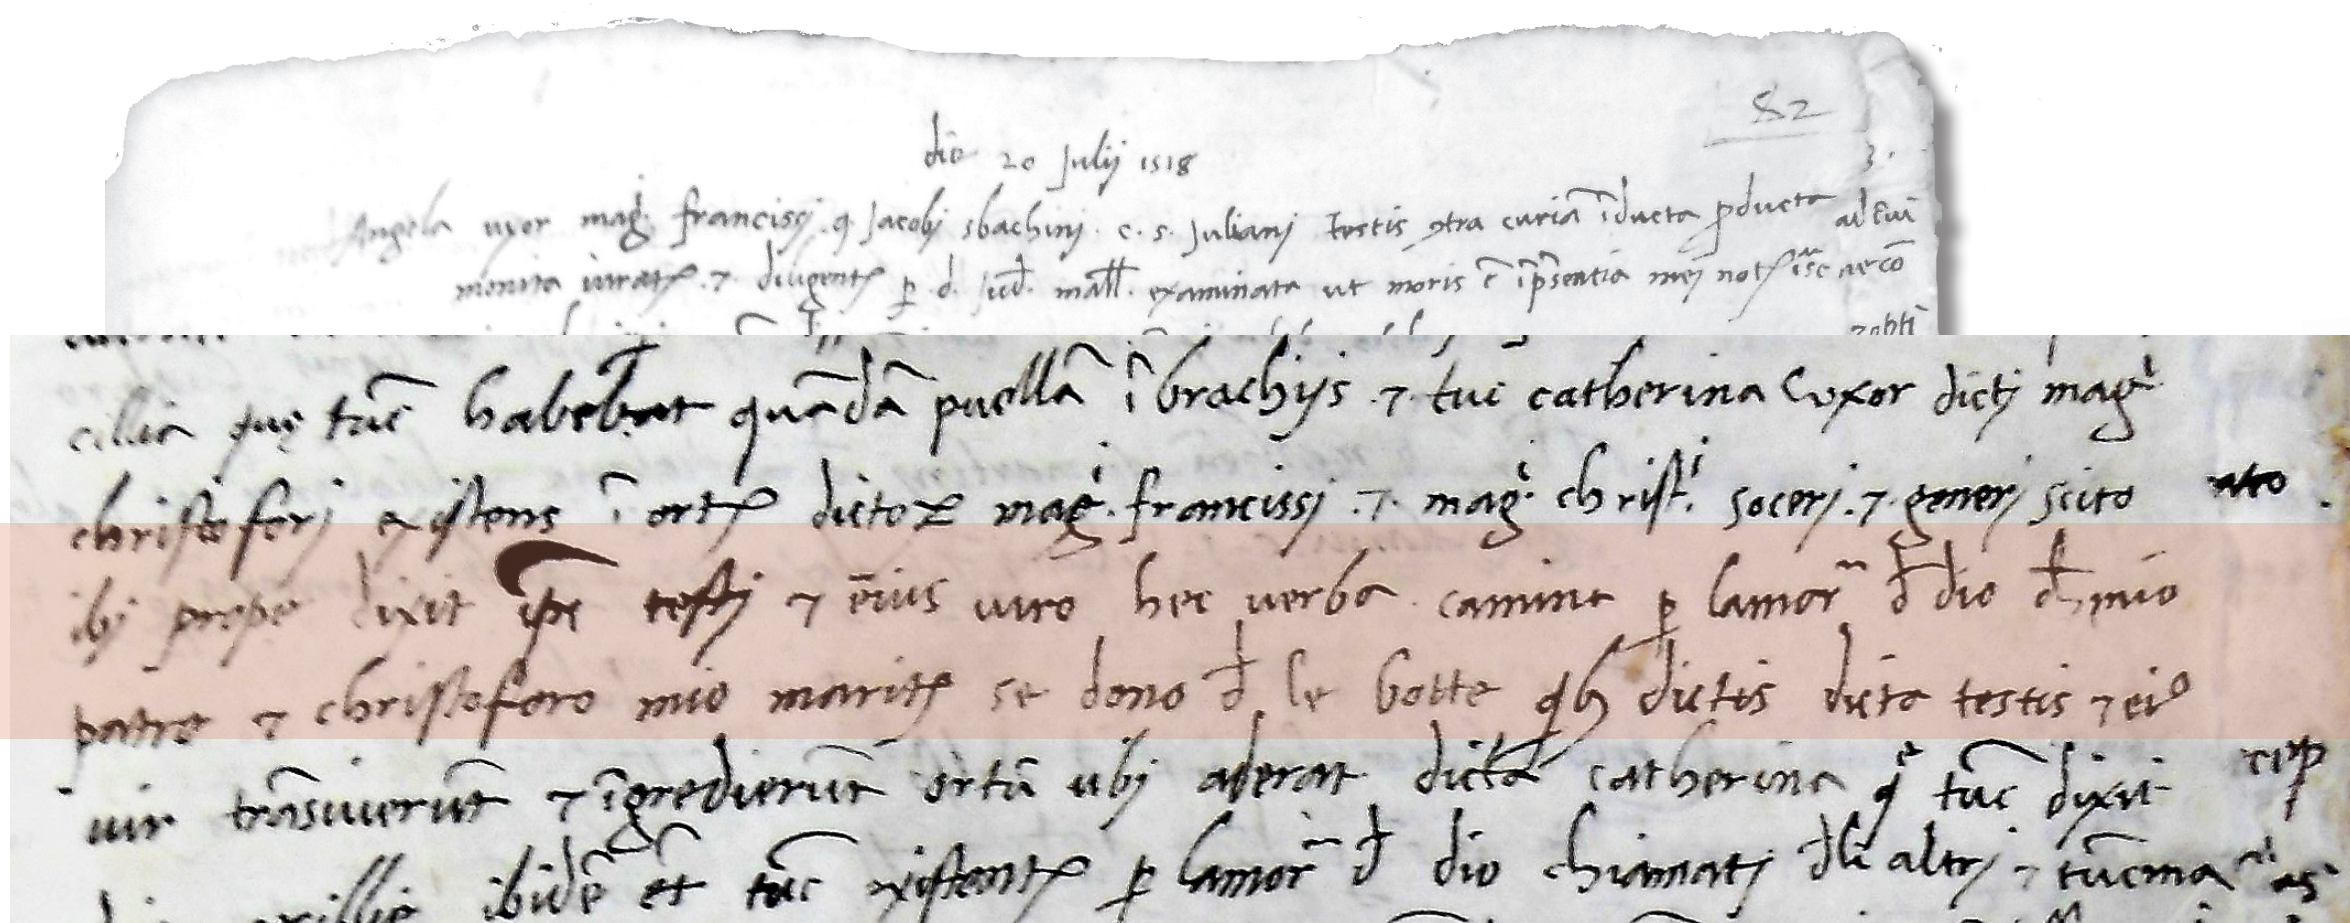 82
die 20 Julij 1518
3.
Angela uxor mag.ri francissj q. Jacobj sbachinj. c. s. Julianj testis ɔtra curiā īducta ꝑducta ad eui
monita iurat. ⁊. diligent ꝑ. d. Jud. mall. examinata ut moris ē ī p̄sentia mej not.
cillia quę tūc habebat quādā puellā ī brachijs. ⁊. tūc catherina uxor dictj mag.ri
christoferj existens ī orto dictoꝝ mag.ri francissj. ⁊. mag.ri christ.i socerj. ⁊. generj scito
ibj prope dixit ip̄e testj ⁊ eius uiro hec uerba. camina ꝑ lamor đ dio đ mio
patre ⁊ christoforo mio marito se dono đ le botte qb dictis dicta testis ⁊ ei9
uir trāsiuerūt ⁊ īgredierūt ortū ubj aderat dicta catherina q tūc dixit
ibidē et tūc existent ꝑ lamor đ dio chiamatj đli altrj ⁊